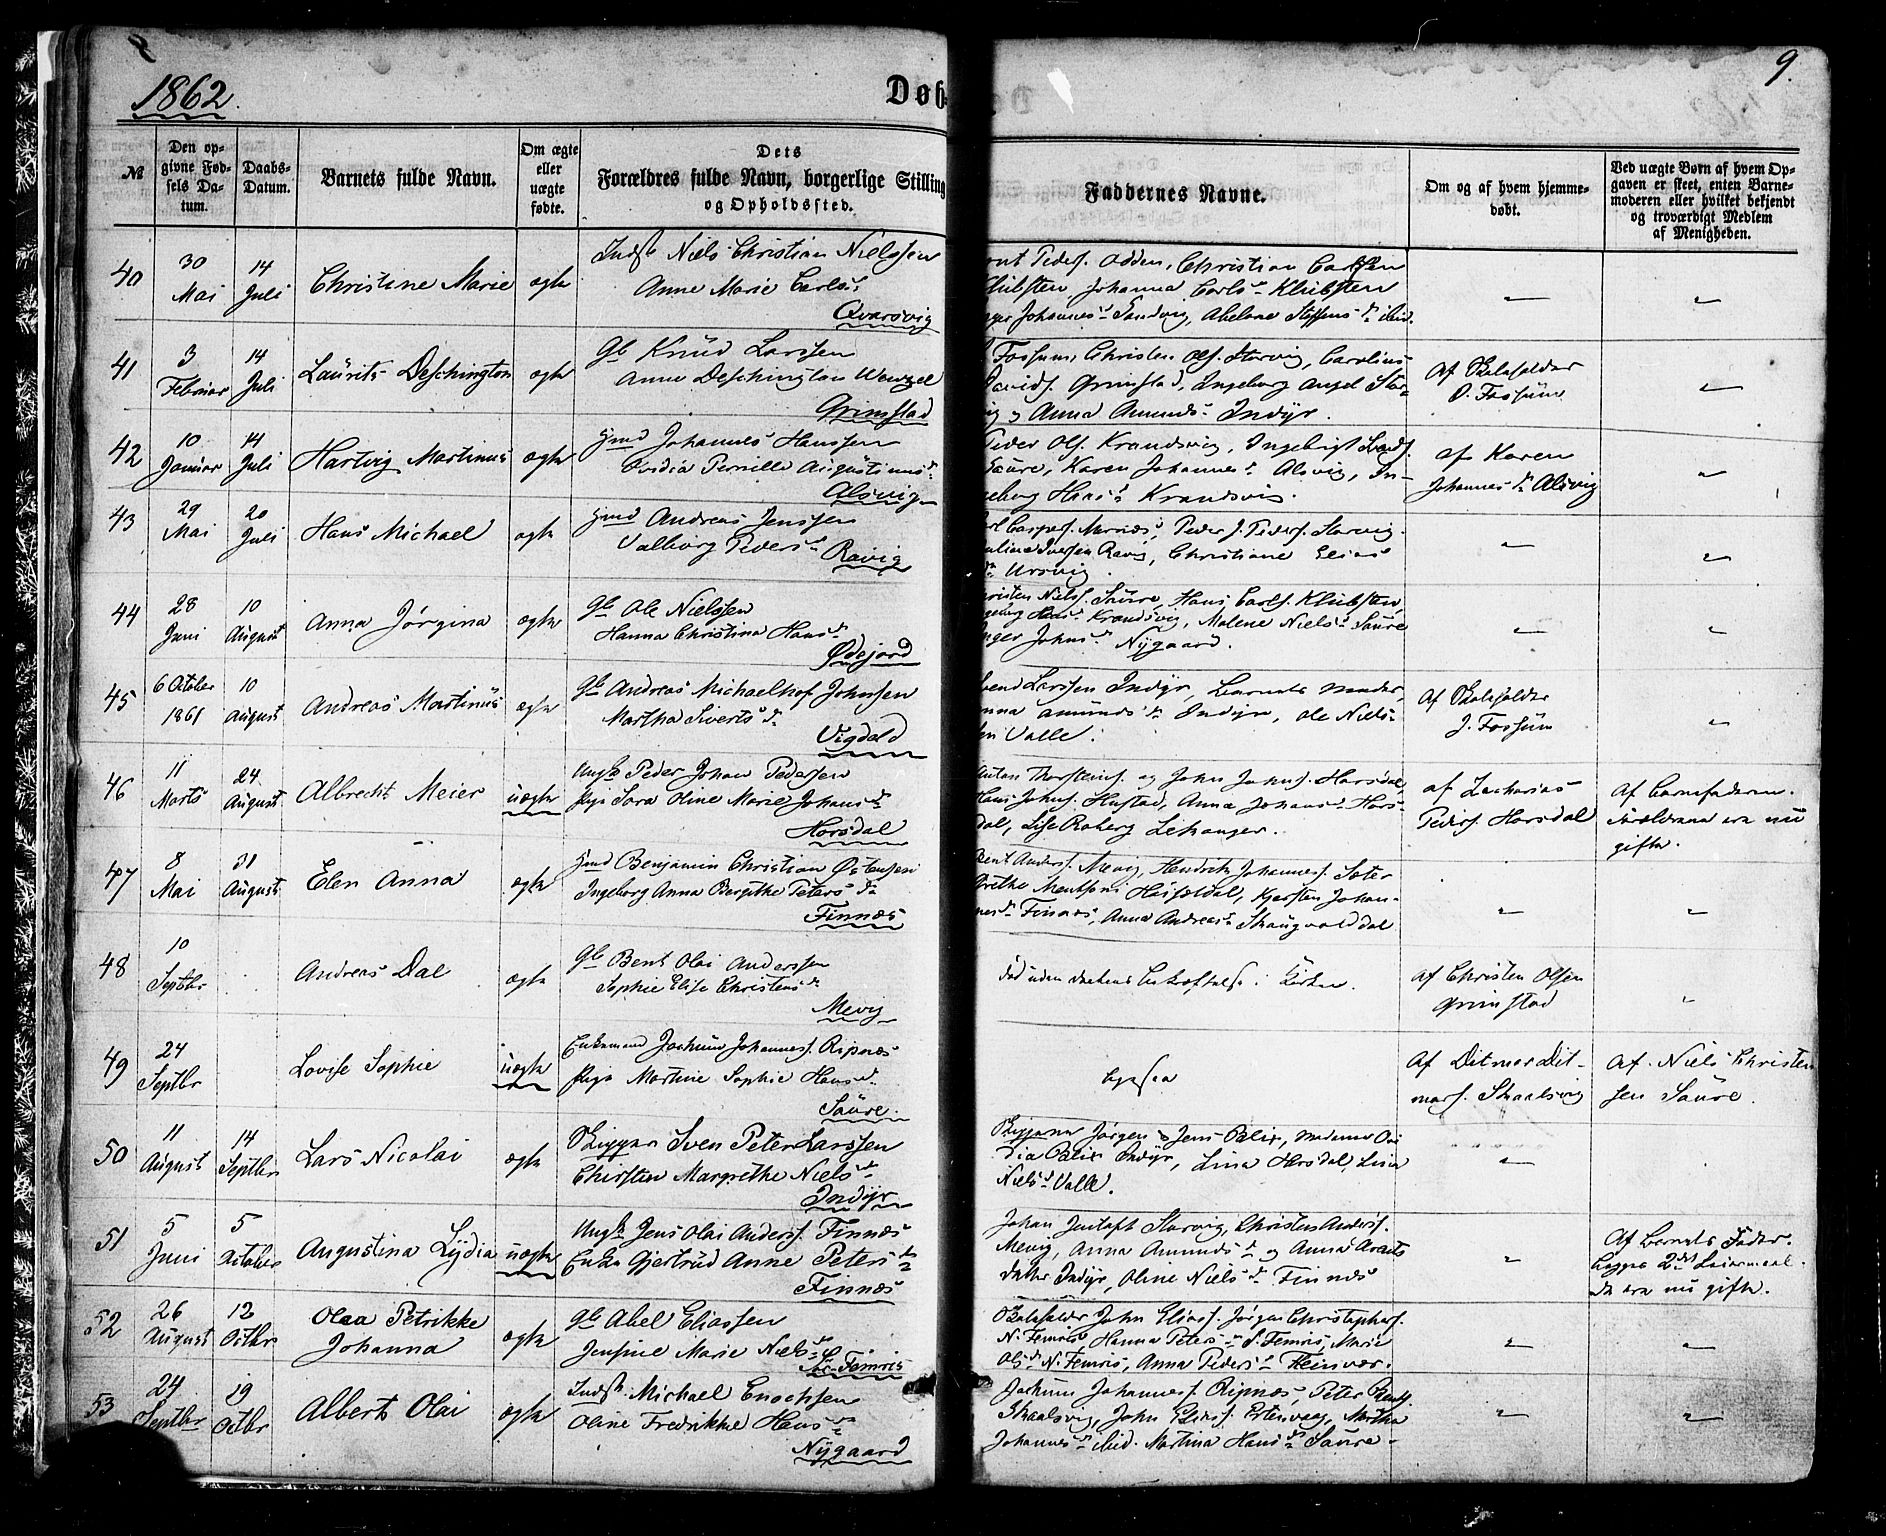 8
1862.
Døb-
9.
№
Den op-
givne Fød-
sels Da-
tum.
Daabs-
Datum.
Barnets fulde Navn.
Om ægte
eller
uægte
fødte.
Dets
Forældres fulde Navn, borgerlige Stilling
og Opholdssted.
Faddernes Navne.
Om og af hvem hjemme-
døbt.
Ved uægte Børn af hvem Op-
gaven er skeet, enten Barne-
moderen eller hvilket bekjendt
og troværdigt Medlem
af Menigheden.
40
30
Mai
14
Juli
Christine Marie
ægte
Indst Niels Christian Nielssen
Anne Marie Carlsd
Qvarsvig
Peders. Odden, Christian Carlsen
Klubsten Johanna Carlsd Klubsten
Johannesd Sandvig, Abelone Steffensdr ibid.
41
3
Februar
14
Juli
Laurits Deschington
ægte
Gb Knud Larssen
Anne Deschington Wenzel
Grimstad
Fossum, Christen Ols. Storvig, Carolius
Davids. Grimstad, Ingeborg Angel Stor-
vig, Anna Amunds Indyr.
af Skoleholder
O. Fossum
42
10
Januar
14
Juli
Hartvig Martinus
ægte
Gmd Johannes Hanssen
Ovidia Pernille Augustinusdr
Alsvig
Peder Ols. Krandsvig, Ingebrigt
Saure, Karen Johannesd Alsvig, In-
geborg Hansd Krandsvig.
af Karen
Johannesdr Alsvig
43
29
Mai
20
Juli
Hans Michael
ægte
Gmd Andreas Jenssen
Valborg Pedersd Ravig
Caspers. Mornæs, Peder J. Peders. Storvig.
Iversen Ravig, Christiane Elias
dr Ursvig.
44
28
Juni
10
August
Anna Jørgina
ægte
Gb Ole Nielssen
Hanna Christina Hansd
Ødejord
Niels. Saure, Hans Carls. Klubsten,
Hansd Krandsvig, Malene Nielsd Saure
Inger Johnsd Nygaard.
45
6 October
1861
10
August
Andreas Martinus
ægte
Gb Andreas Michaelhof Johnsen
Martha Sivertsdr
Vigdal
Larssen Indyr, Barnets Moder,
Anna Amundsdr Indyr, Ole Niels-
sen Valle.
af Skoleholder
J. Fossum
46
11
Marts
24
August
Albrecht Meier
uægte
Ungk Peder Johan Pedersen
Pige Sara Oline Marie Johansdr
Horsdal
Anton Thorsteins. og John Johns. Horsdal,
Hans Johns. Hustad, Anna Johansd Hors-
dal, Lise Roberg Lehanger.
af Zacharias
Peders. Horsdal
Af Barnefaderen.
Forældrene ere nu
gifte.
47
8
Mai
31
August
Elen Anna
ægte
Gmd Benjamin Christian Østensen
Ingeborg Anna Bergitte Petersdr
Finnæs
Bent Anders. Mevig, Hendrik Johannes. Soter
Grethe Mentsoni Hasseldal, Kjersten Johan-
nesdr Finnæs, Anna Andreasd
48
10
Septbr
Andreas Dal
ægte
Gb Bent Olai Anderssen
Sophie Elise Christensdr
Mevig
Død uden Daabens Bekræftelse i Kirken.
af Christen Olsen
Grimstad
49
24
Septbr
Lovise Sophie
uægte
Enkemand Jochum Johannes. Ripnæs
Pige Martine Sophie Hansd.
Saure.
ligesaa
Af Ditmar Dit-
mars. Skaalsvig
Af Niels Christen
sen Saure.
50
11
August
14
Septbr
Lars Nicolai
ægte
Skipper Sven Peter Larssen
Chirsten Margrethe Nielsd
Indyr
Jørgen & Jens Blix, Madame Ovi
dia Blix Indyr, Lina Horsdal, Lina
Nielsd Valle.
51
5
Juni
5
October
Augustina Lydia
uægte
Ungk Jens Olai Anders. Finnæs
Enke Gjertrud Anne Petersdr
Finnæs
Johan Jentoft Storvig, Christen Anders.
Mevig, Anna Amundsd og Anna Arnts
datter Indyr, Oline Nielsdr Finnæs
Af Barnets Fader.
Begges 2det Leiermaal.
De ere nu gifte.
52
26
August
12
Octbr
Olea Petrikke
Johanna
ægte
Gb Abel Eliassen
Jensine Marie Nielsd
Sør-Femris
Skoleholder John Elias. Jørgen Christophers.
N. Femris, Hanna Petersdr S. Femris, Marie
Olsd N. Femris, Anna Pedersd Fleinvær.
53
24
Septbr
19
Octbr
Albert Olai
ægte
Indst. Michael Enochsen
Oline Fredrikke Hansd
Nygaard
Jochum Johannes. Ripnæs, Peter
Skaalsvig, John Elias. Estenvaag, Martha
Johannesd ibid. Martina Hansdr Saure.